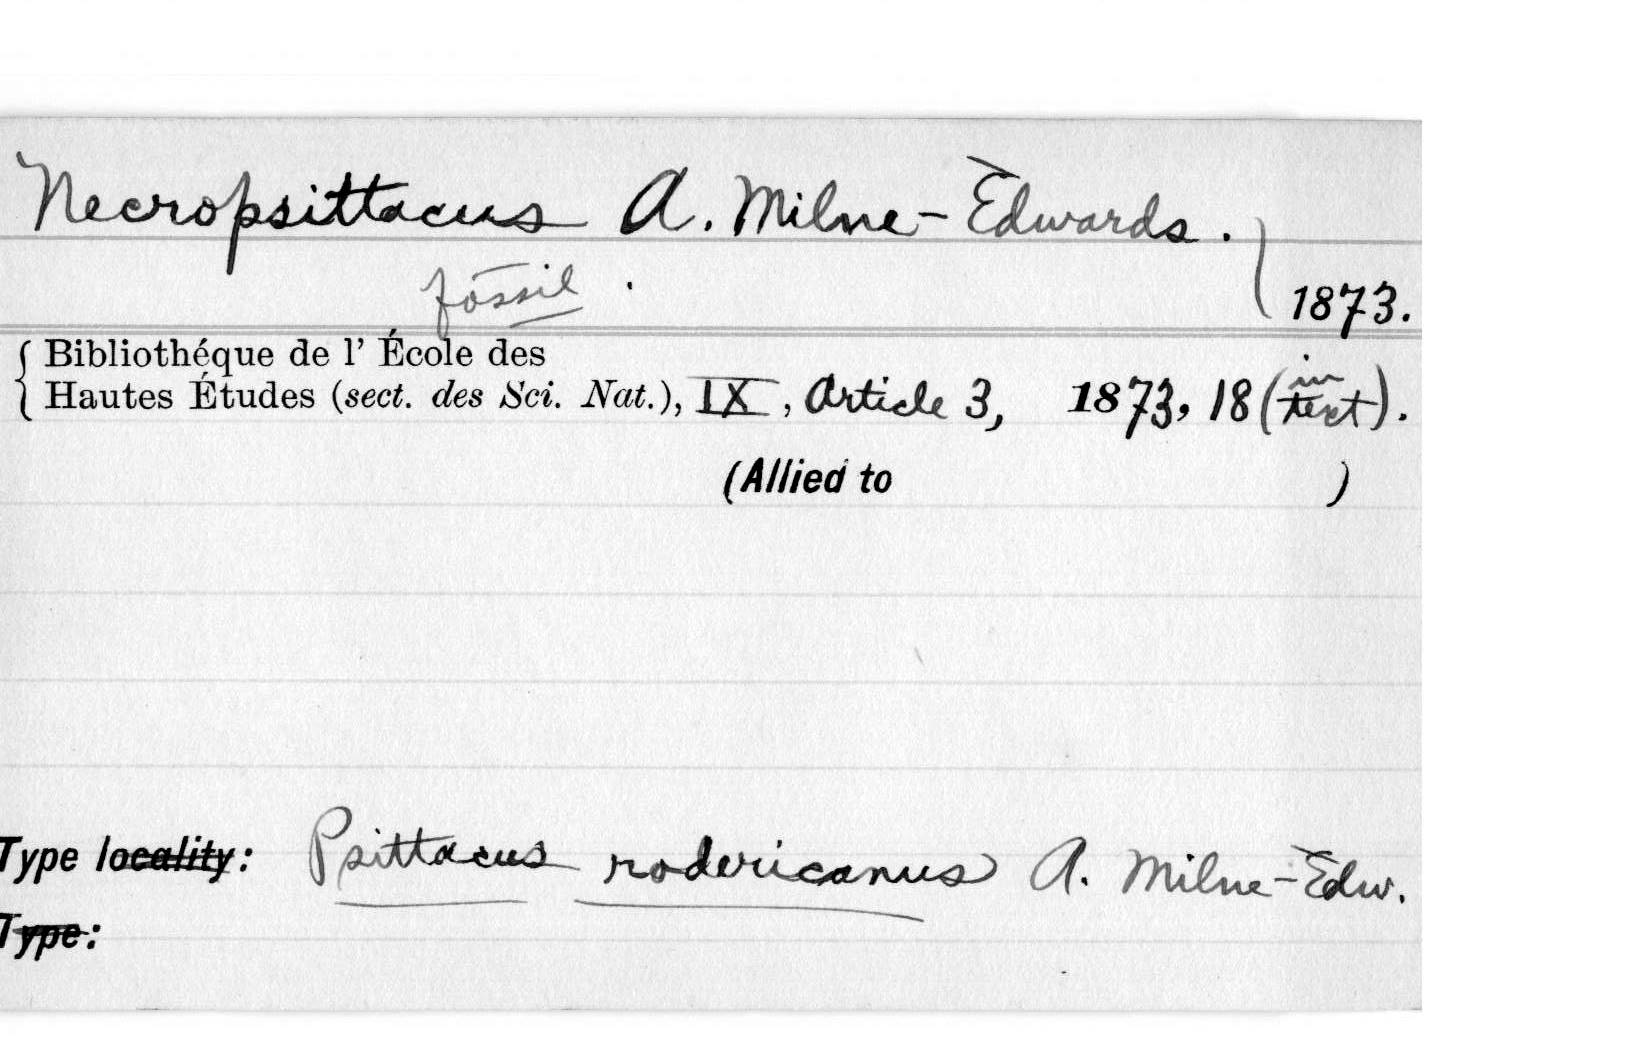 Necropsittacus A. Milne-Edwards.
fossil.
1873.
Bibliothéque de l' École des
Hautes Études (sect. des Sci. Nat.), IX, Article 3, 1873, 18 (in text).
(Allied to )
Type locality: Psittacus rodericanus A. Milne-Edw.
Type: